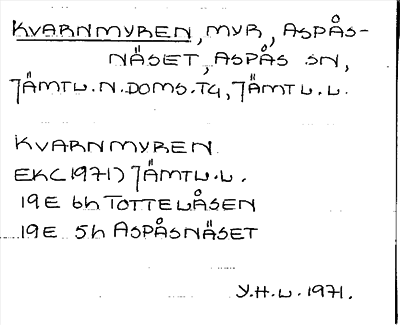 KVARNMYREN, MYR, ASPÅS-
NÄSET, ASPÅS SN,
JÄMTL.N.DOMS.TG, JÄMTL.L.
KVARNMYREN
EK(1971) JÄMTL.L.
19E 6h TOTTELÅSEN
19E 5h ASPÅSNÄSET
Y.H.L. 1971.